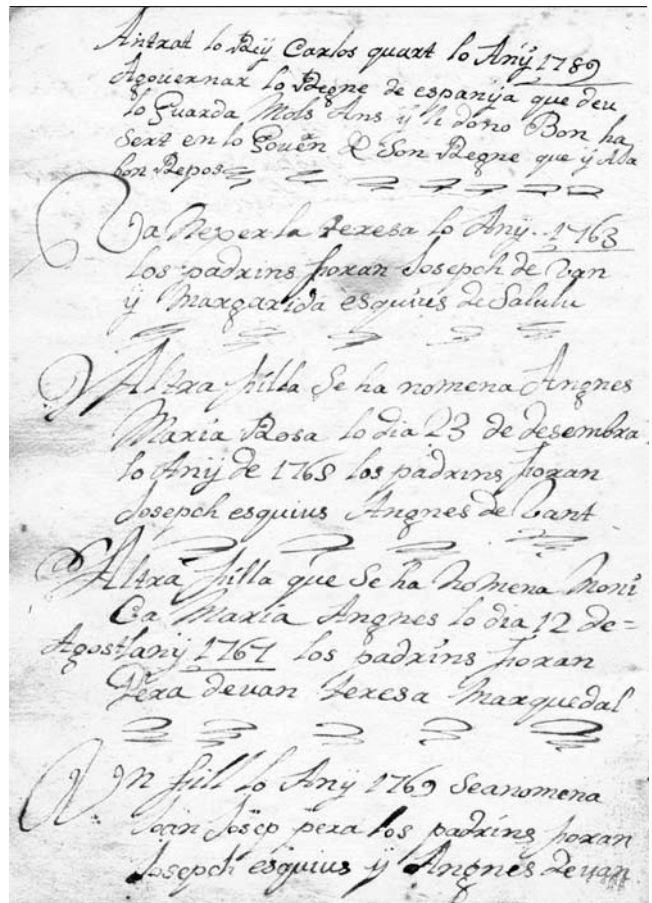 Antrat lo Reÿ Carlos quart lo Anÿ 1789
Agouernar lo Regne de espanija que deu
lo Guarda Mols Ans ÿ li dono Bon ha
sert en lo Gouern & Son Regne que ÿ
bon Repos
Va Nexer la teresa lo Anÿ 1763
los padrins foran Josepch de Van
ÿ Margarida esquius de Salulu
Altra filla Se ha nomena Angnes
Maria Rosa lo dia 23 de desembra
lo Anÿ de 1765 los padrins foran
Josepch esquius Angnes de Vant
Altra filla que Se ha Nomena Moni
Ca Maria Angnes lo dia 12 de=
Agost lanÿ 1767 los padrins foran
Pera deuan teresa Marquedal
Un fill lo Anÿ 1769 Seanomena
Joan Josep pera los padrins foran
Josepch esquius ÿ Angnes deuan